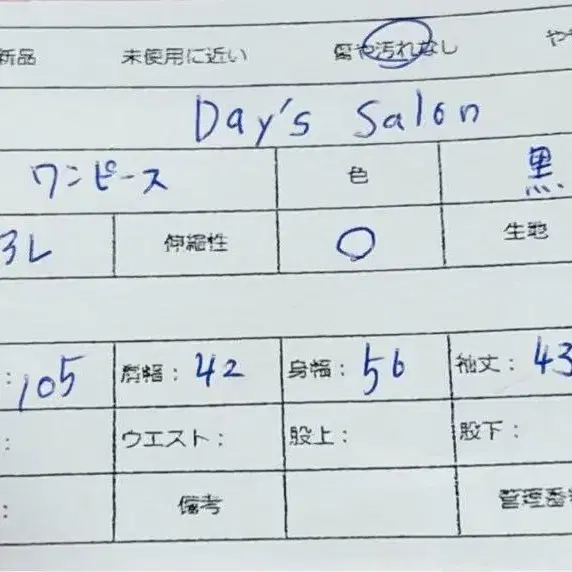 新品 未使用に近い 傷や汚れなし やや
Day's Salon
ワンピース 色 黒
3L 伸縮性 ○ 生地
: 105 肩幅: 42 身幅: 56 袖丈: 43
: ウエスト: 股上: 股下:
: 備考 管理番号